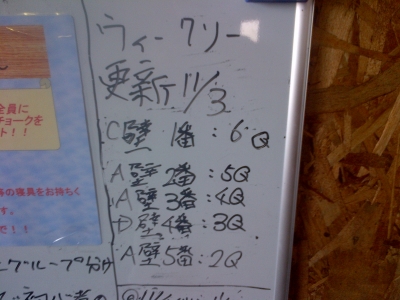 ウィークリー
更新11/3
C壁 1番:6Q
A壁 2番:5Q
A壁 3番:4Q
D壁 4番:3Q
A壁 5番:2Q
全員に
チョークを
ト!!
等の寝具をお持ちく
!!
グループ分け